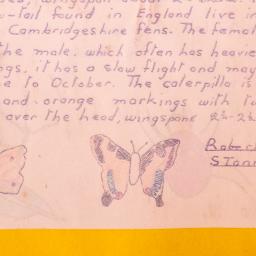 wingspan about
-tail found in England live in
Cambridgeshire fens. The femal
the male, which often has heavie
ngs, it has a slow flight and may
e to October. The caterpilla is
and orange markings with tw
over the head, wingspane